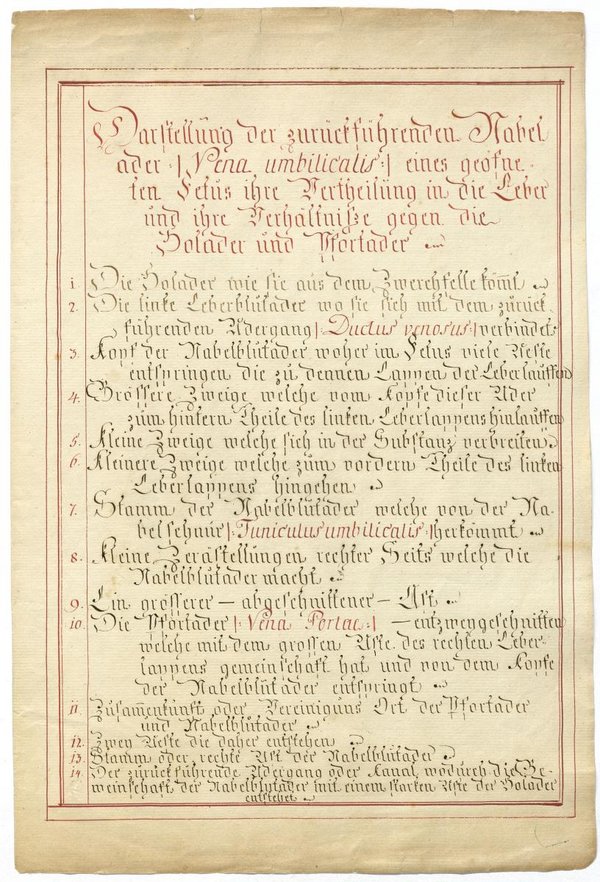 Darstellung der zurückführenden Nabel
ader |: Vena umbilicalis :| eines geöfne-
ten Fetus ihre Vertheilung in die Leber
und ihre Verhältniße gegen die
Holader und Pfortader
1. Die Holader wie sie aus dem Zwerchfelle kömt
2. Die linke Leberblutader wo sie sich mit dem zurück
führenden Adergang |: Ductus venosus :| verbindet
3. Kopf der Nabelblutader woher im Fetus viele Aeste
entspringen die zu dennen Lappen der Leber lauffen
4. Grössere Zweige welche vom Kopfe dieser Ader
zum hintern Theile des linken Leberlappens hinlauffen
5. Kleine Zweige welche sich in der Substanz verbreiten
6. Kleinere Zweige welche zum vordern Theile des linken
Leberlappens hingehen
7. Stamm der Nabelblutader welche von der Na-
belschnur |: Funiculus umbilicalis :| herkömmt
8. Kleine Zerästellungen rechter Seits welche die
Nabelblutader macht
9. Ein grösserer — abgeschnittener — Ast
10. Die Pfortader |: Vena Portae :| — entzweygeschnitten
welche mit dem grossen Aste des rechten Leber-
lappens gemeinschaft hat und von dem Kopfe
der Nabelblutader entspringt
11. Zusamenkunft oder Vereinigungs Ort der Pfortader
und Nabelblutader
12. Zwey Aeste die daher entstehen
13. Stamm oder rechte Ast der Nabelblutader
14. Der zurückführende Adergang oder Kanal wodurch die Ge-
meinschaft der Nabelblutader mit einem starken Aste der Holader
entstehet